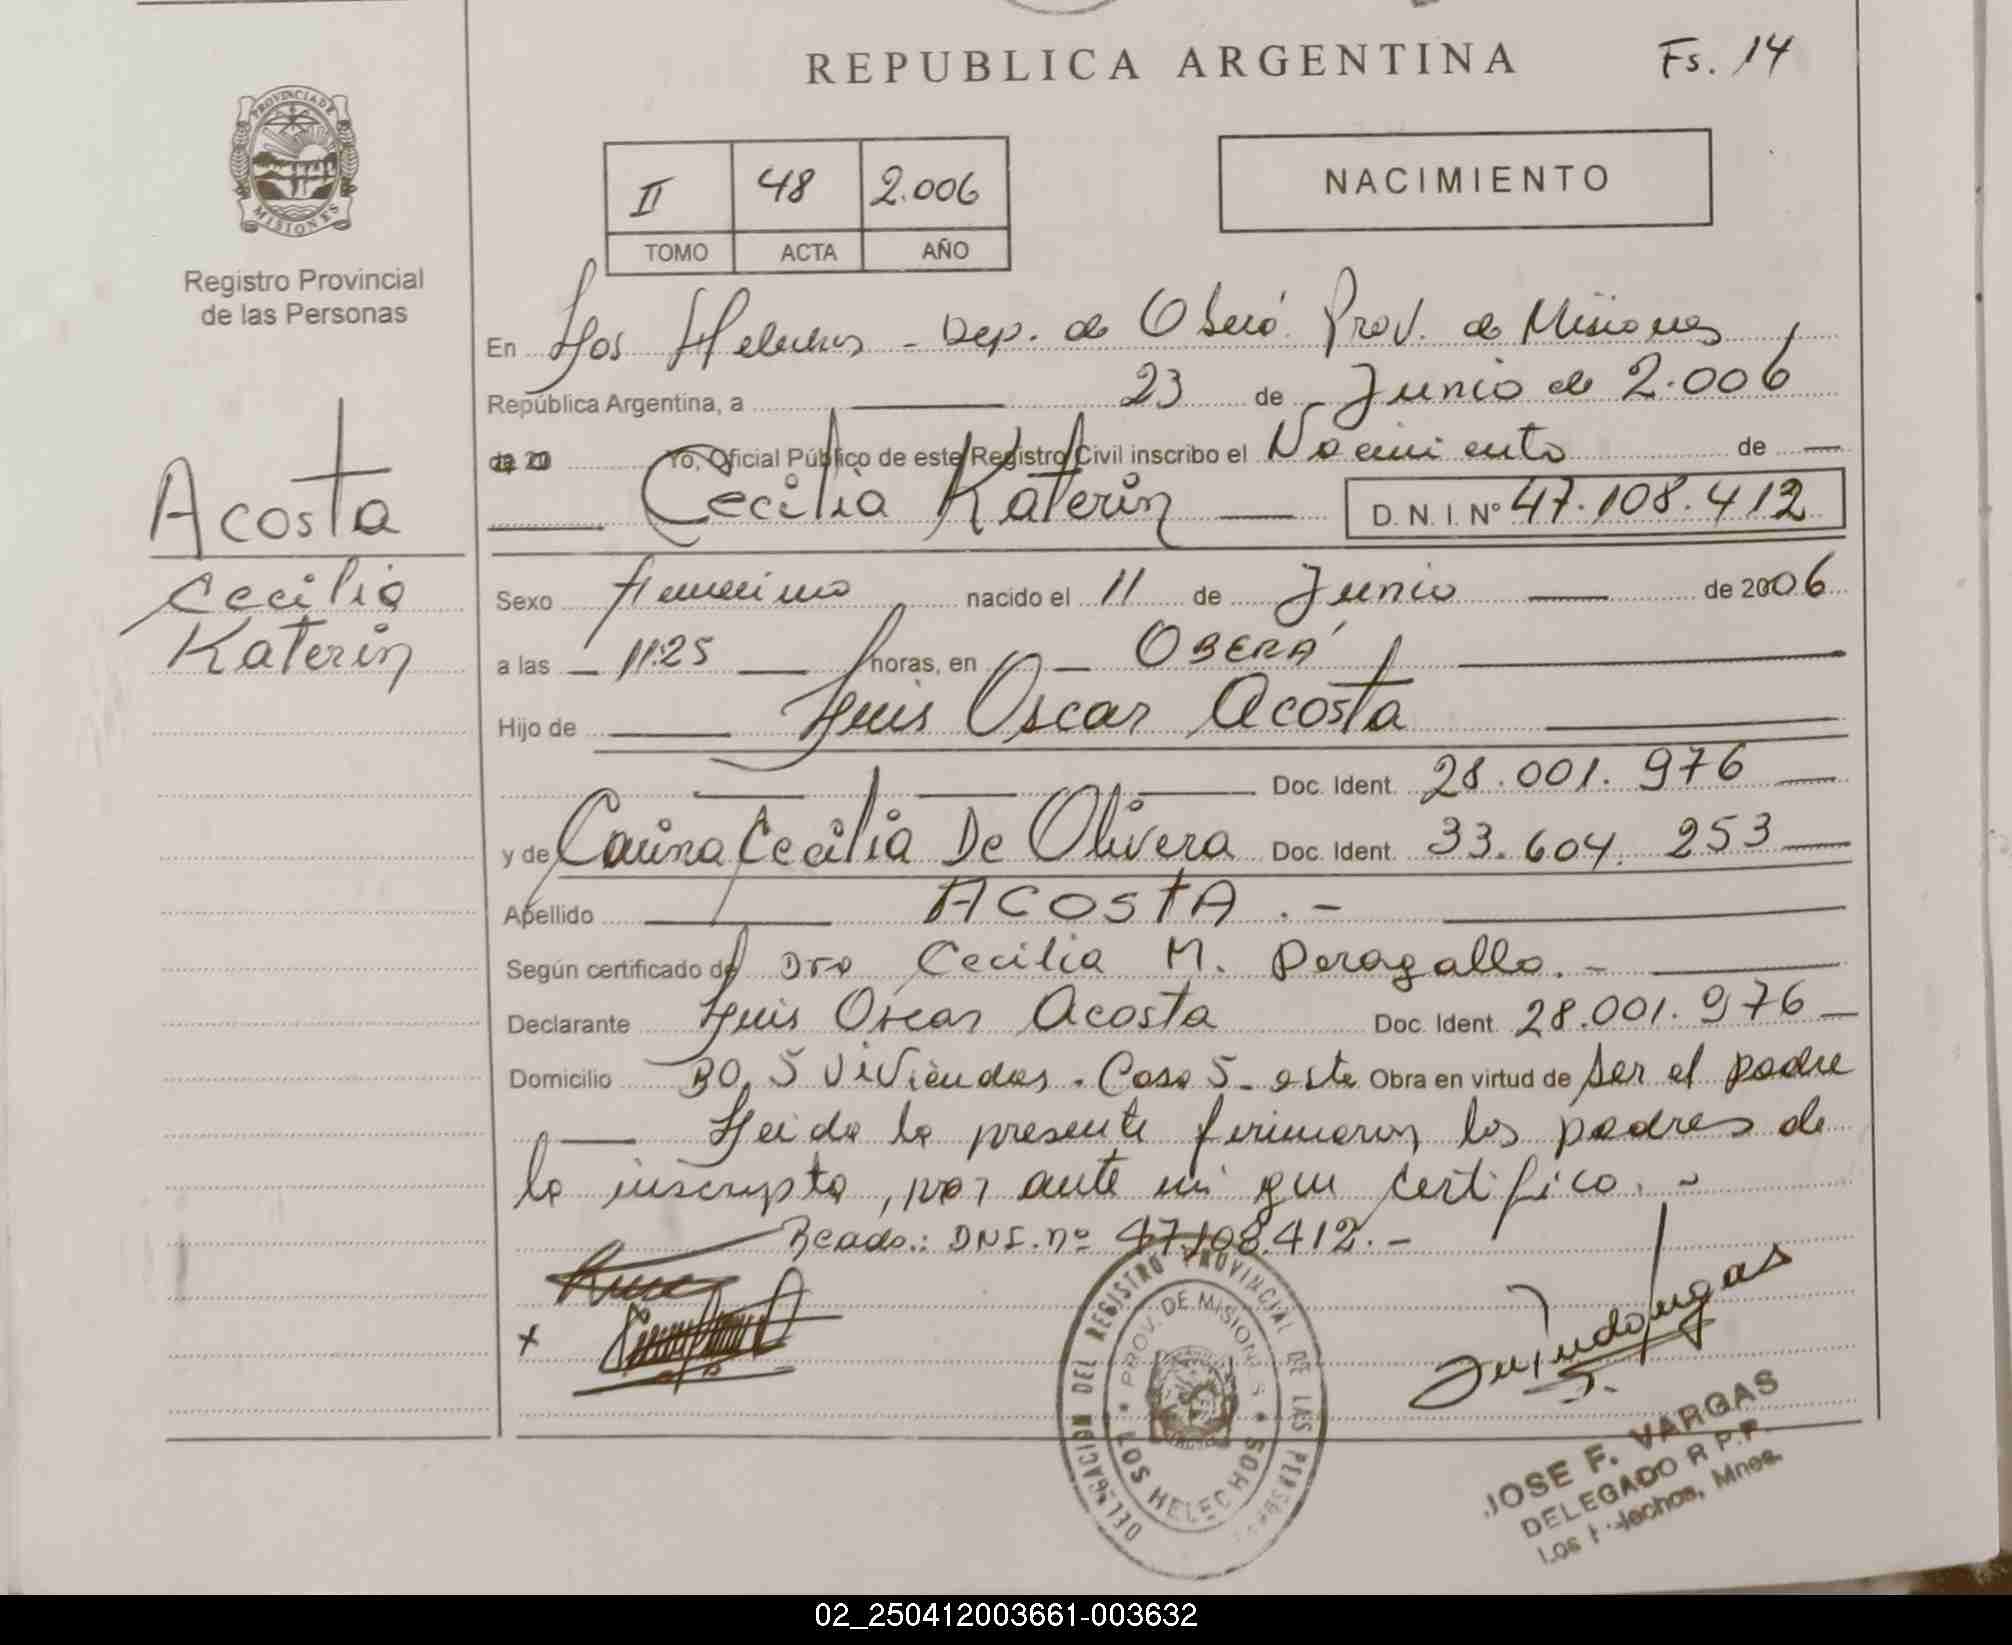 REPUBLICA ARGENTINA
Fs. 14
PROVINCIA DE
MISIONES
Registro Provincial
de las Personas
II 48 2.006
TOMO ACTA AÑO
NACIMIENTO
En Los Helechos - Dep. de Oberá. Prov. de Misiones,
República Argentina, a 23 de Junio de 2.006
de 20 Yo, Oficial Público de este Registro Civil inscribo el Nacimiento de
Cecilia Katerin D. N. I. Nº 47.108.412
Acosta
Cecilia
Katerin
Sexo femenino nacido el 11 de Junio de 2006
a las 11:25 horas, en OBERÁ
Hijo de Luis Oscar Acosta
Doc. Ident. 28.001.976
y de Carina Cecilia De Olivera Doc. Ident. 33.604.253
Apellido ACOSTA.-
Según certificado de Dra Cecilia M. Peragallo.-
Declarante Luis Oscar Acosta Doc. Ident. 28.001.976
Domicilio BO, 5 Viviendas. Casa 5- este Obra en virtud de ser el padre
Leida la presente firmaron los padres de
la inscripta, por ante mi que certifico.-
DNI. nº 47.108.412.-
x
DELEGACION DEL REGISTRO PROVINCIAL DE LAS PERSONAS
PROV. DE MISIONES
LOS HELECHOS
JOSE F. VARGAS
DELEGADO R.P.P.
Los Helechos, Mnes.
02_250412003661-003632